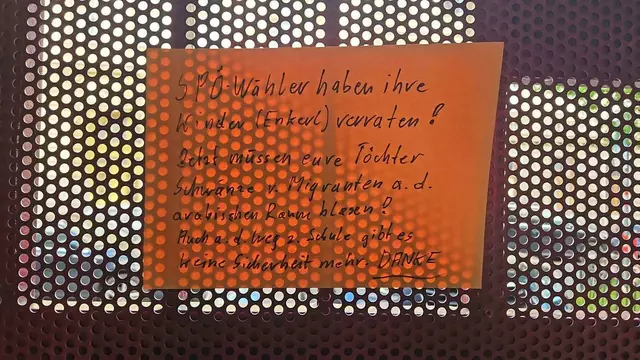 SPÖ-Wähler haben ihre
Kinder (Enkerl) verraten!
Jetzt müssen eure Töchter
Schwänze v. Migranten a. d.
arabischen Raum blasen!
Auch a. d. Weg z. Schule gibt es
keine Sicherheit mehr. DANKE